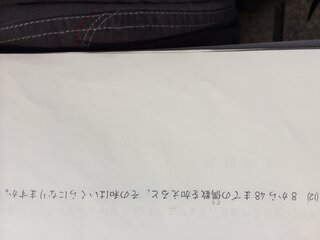 (12) 8から48までの偶数を加えると、その和はいくらになりますか。